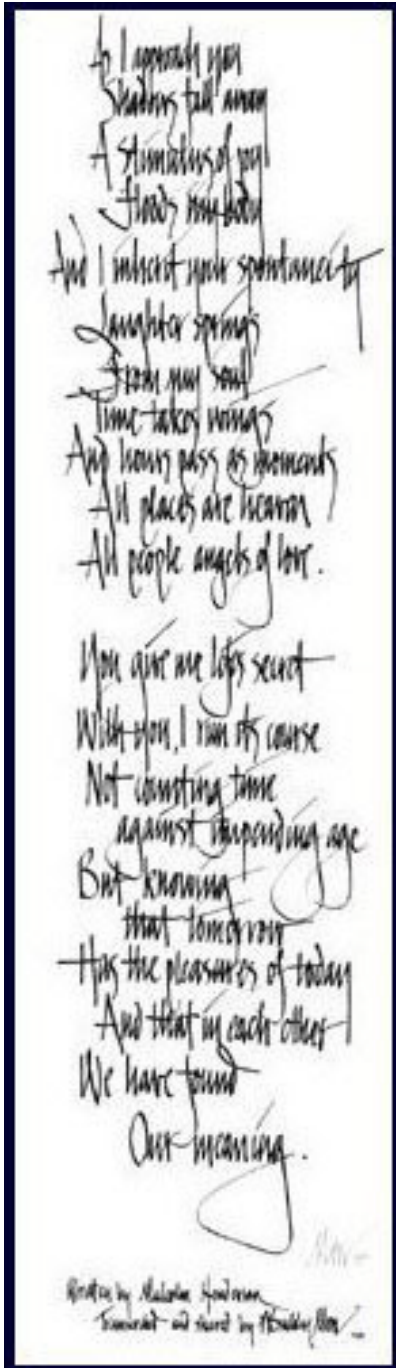 As I approach you
Shadows fall away
A stimulus of joy
Floods my body
And I inherit your spontaneity
Laughter springs
From my soul
Time takes wings
And hours pass as moments
All places are heaven
All people angels of love.
You give me life's secret
With you, I run its course
Not counting time
against impending age
But knowing
that tomorrow
Has the pleasures of today
And that in each other
We have found
Our meaning.
Written by Malcolm
and shared by